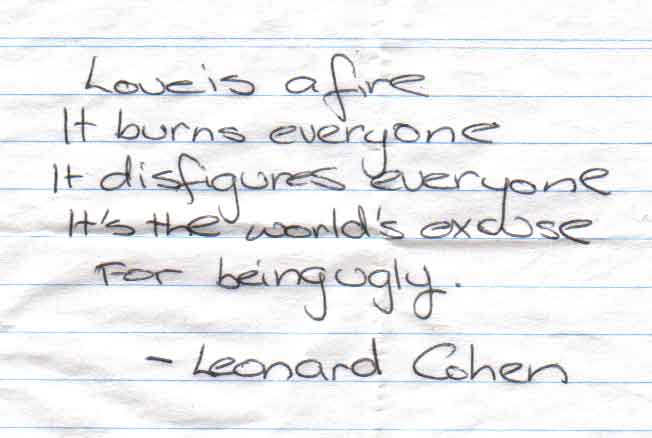 Love is a fire
It burns everyone
It disfigures everyone
It's the world's excuse
For being ugly.
- Leonard Cohen